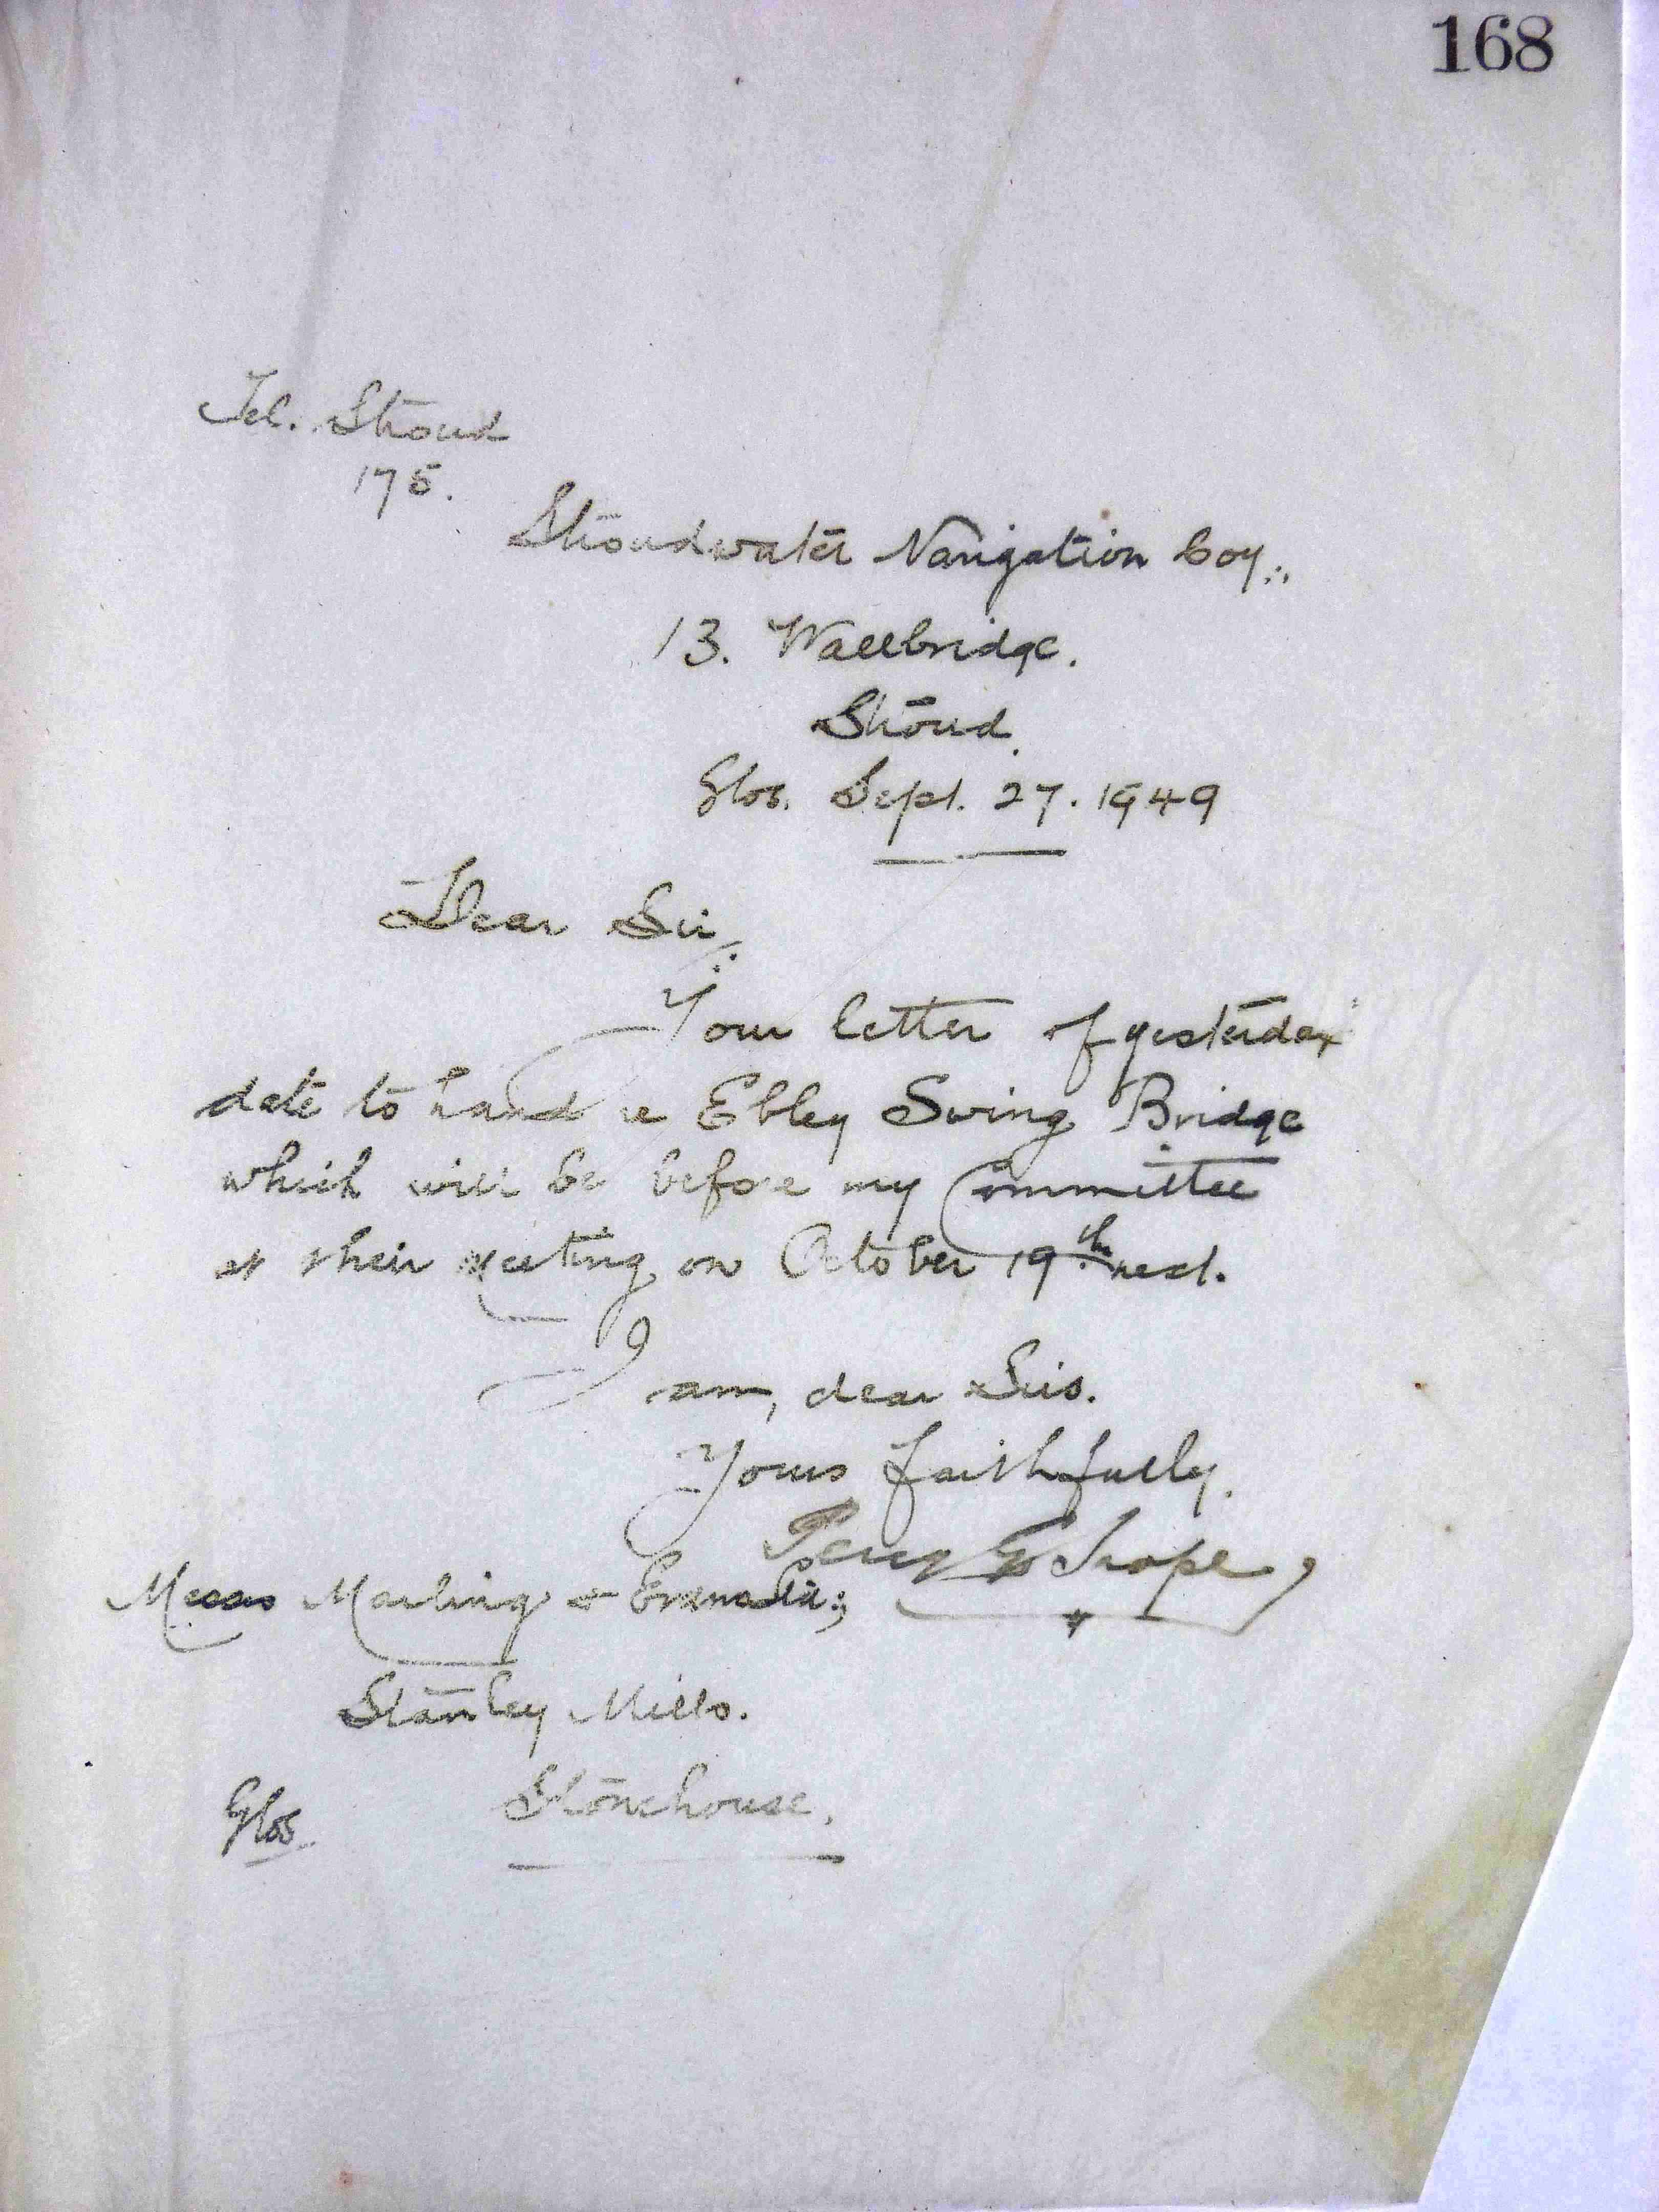 168
Tel. Stroud
175.
Stroudwater Navigation Coy.,
13. Wallbridge.
Stroud.
Glos. Sept. 27. 1949
Dear Sir,
Your letter of yesterday
date to hand re Ebley Swing Bridge
which will be before my Committee
at their meeting on October 19th next.
I am, dear Sirs.
Yours faithfully.
Percy G Snape
Messrs Marling & Evans Ltd.,
Stanley Mills.
Stonehouse.
Glos.